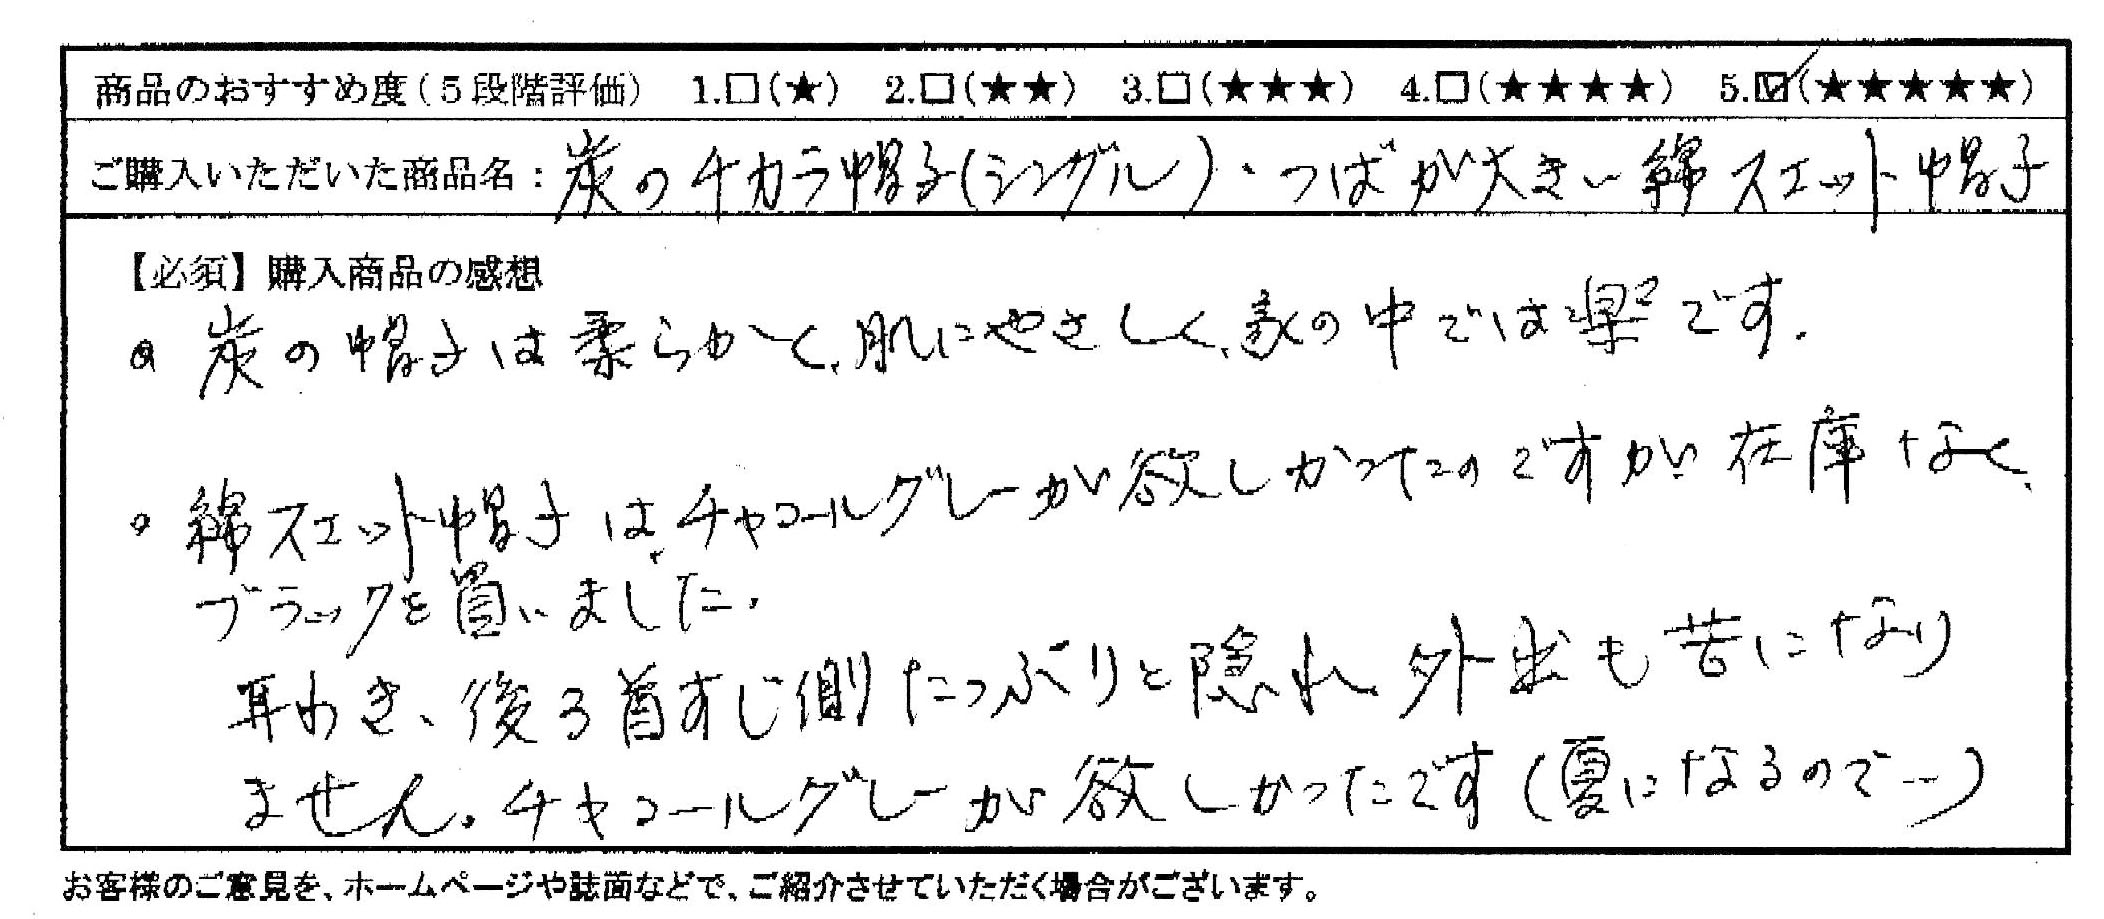 商品のおすすめ度(5段階評価) 1.□(★) 2.□(★★) 3.□(★★★) 4.□(★★★★) 5.☑(★★★★★)
ご購入いただいた商品名：炭のチカラ帽子(シングル)・つばが大きい綿スエット帽子
【必須】購入商品の感想
。炭の帽子は柔らかく、肌にやさしく、家の中では楽です.
。綿スエット帽子は、チャコールグレーが欲しかったのですが在庫なく、
ブラックを買いました.
耳わき、後ろ首すじ側たっぷりと隠れ外出も苦になり
ません。チャコールグレーが欲しかったです(夏になるので…)
お客様のご意見を、ホームページや誌面などで、ご紹介させていただく場合がございます。